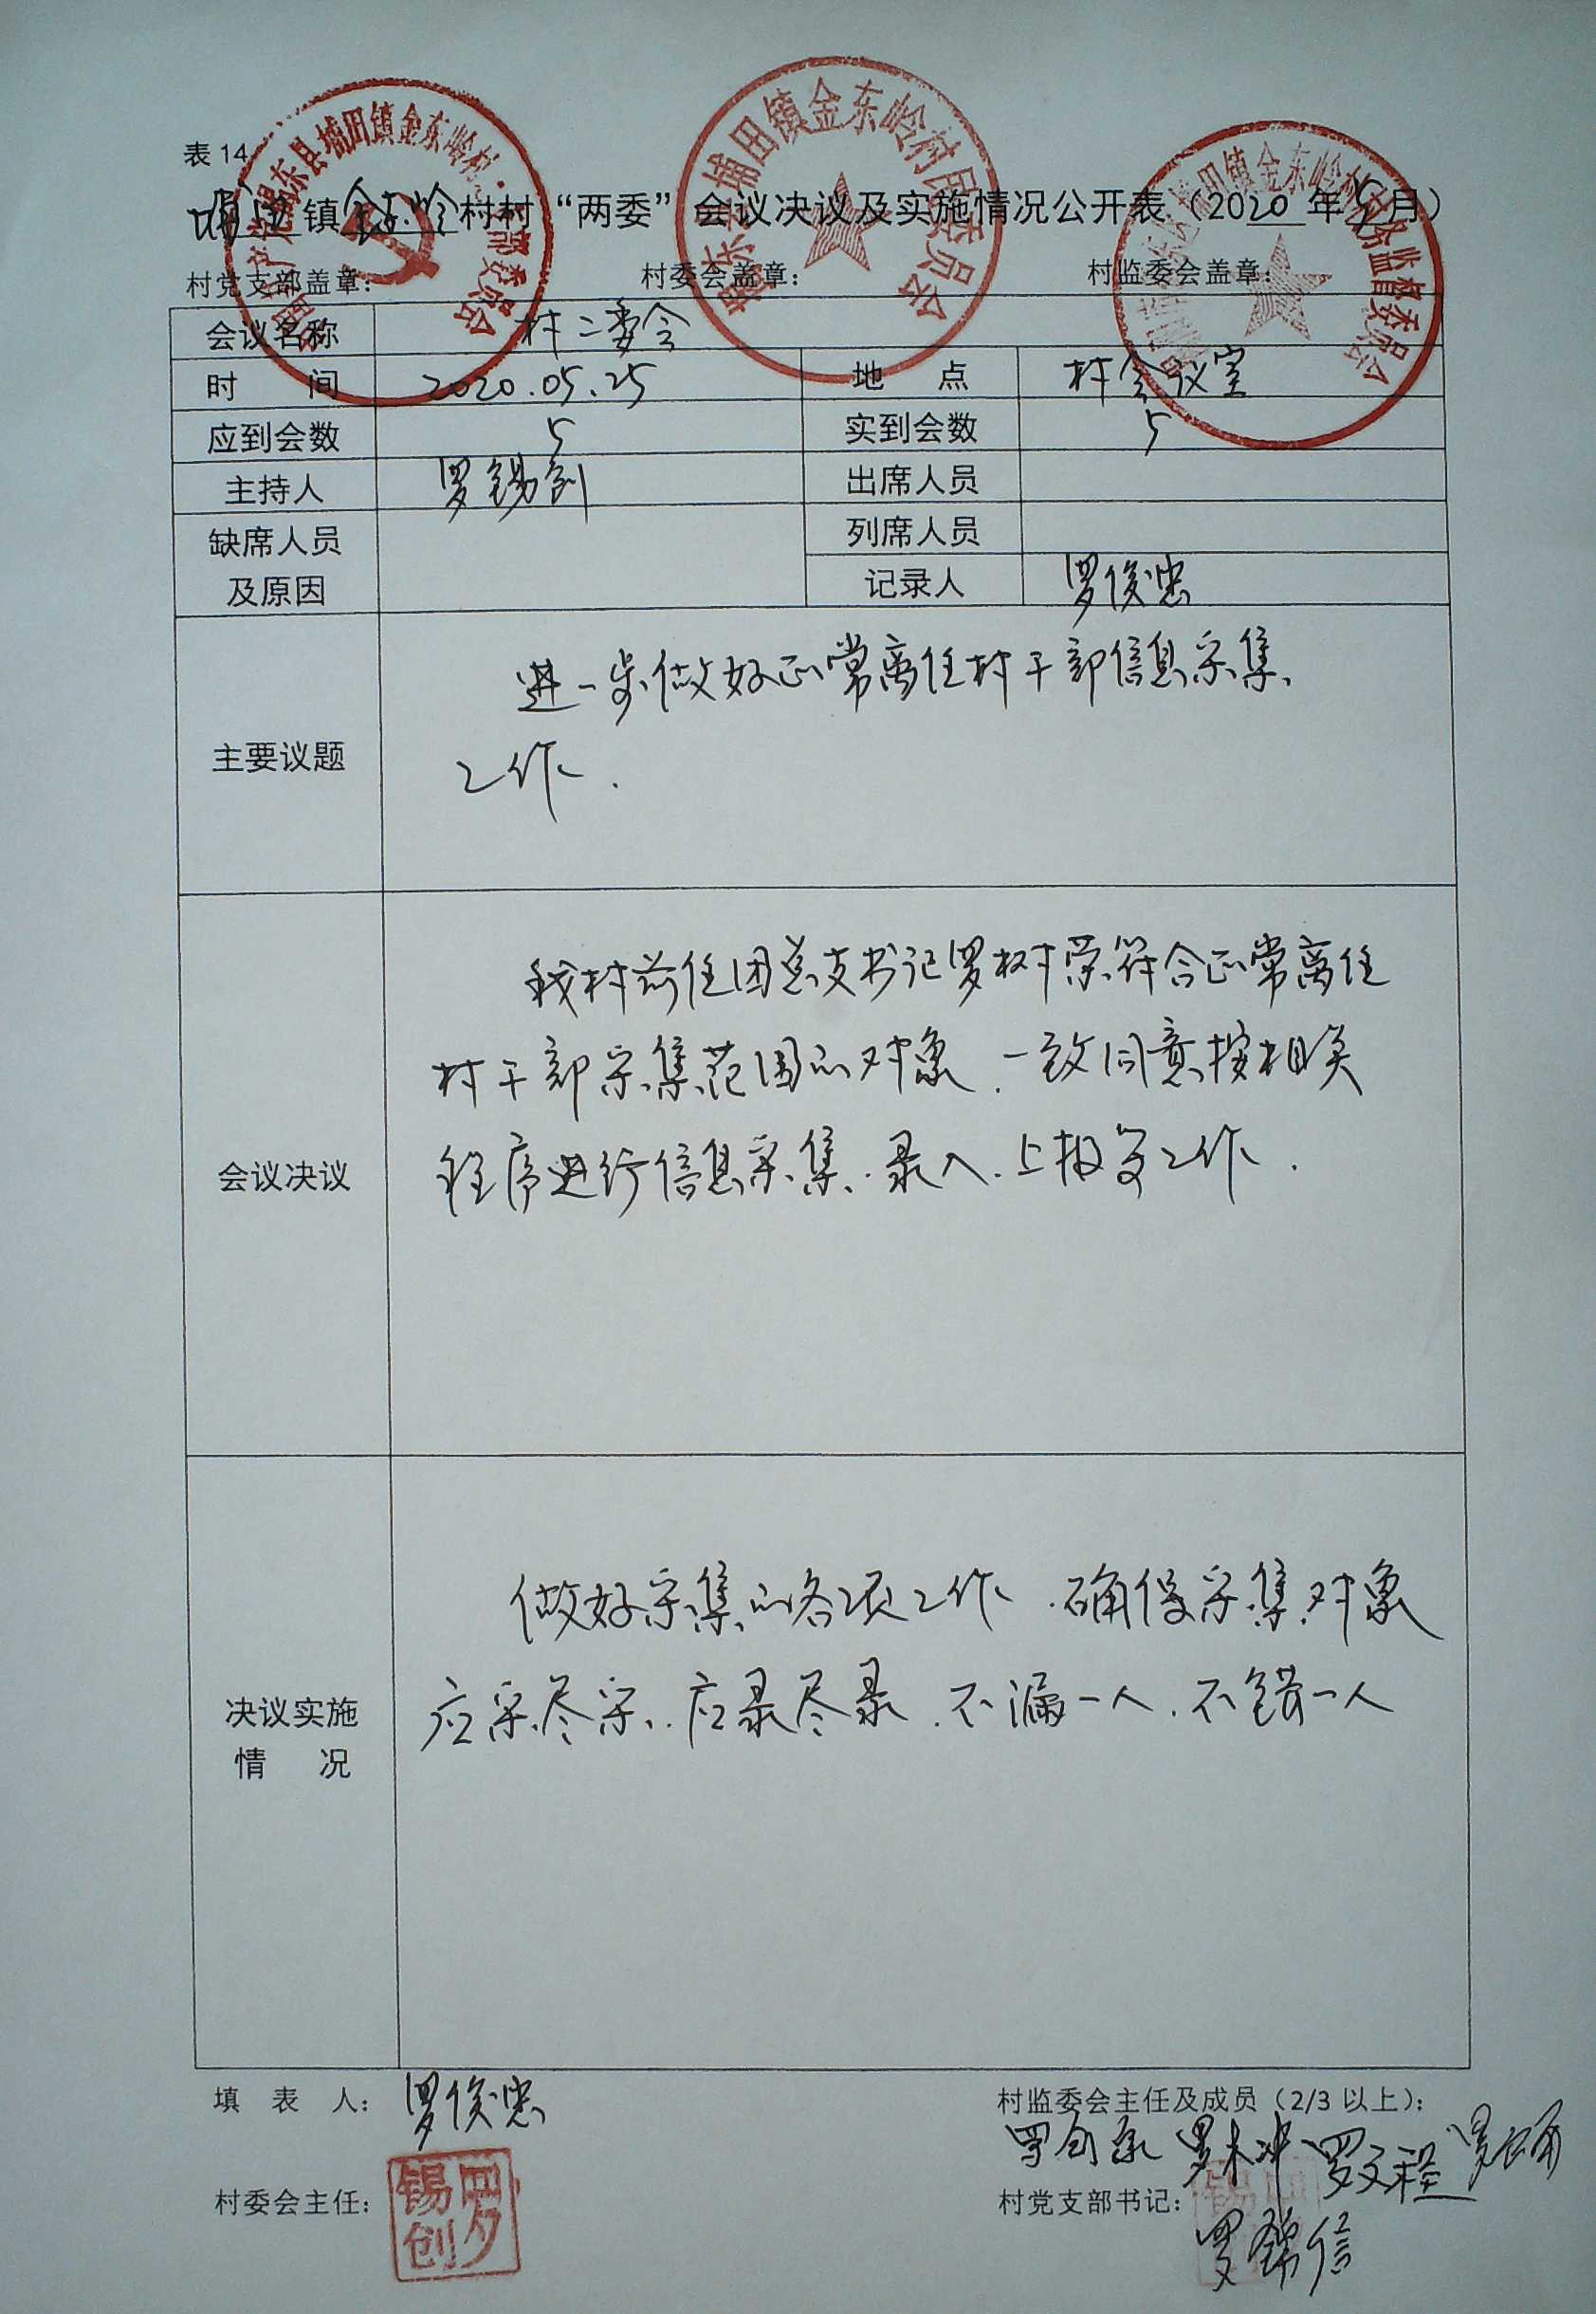 表 14
埔田镇金东岭村村“两委”会议决议及实施情况公开表（2020年5月）
村党支部盖章： 村委会盖章： 村监委会盖章：
会议名称 村二委会
时 间 2020.05.25 地 点 村会议室
应到会数 5 实到会数 5
主持人 罗锡创 出席人员
缺席人员 列席人员
及原因 记录人 罗俊忠
进一步做好正常离任村干部信息采集
主要议题
工作.
我村前任团总支书记罗树荣符合正常离任
村干部采集范围的对象、一致同意按相关
会议决议
程序进行信息采集、录入、上报等工作.
做好采集的各项工作、确保采集对象
决议实施
应采尽采、应录尽录、不漏一人、不错一人
情 况
填 表 人： 罗俊忠
村监委会主任及成员（2/3 以上）：
村委会主任： 罗锡创
村党支部书记：